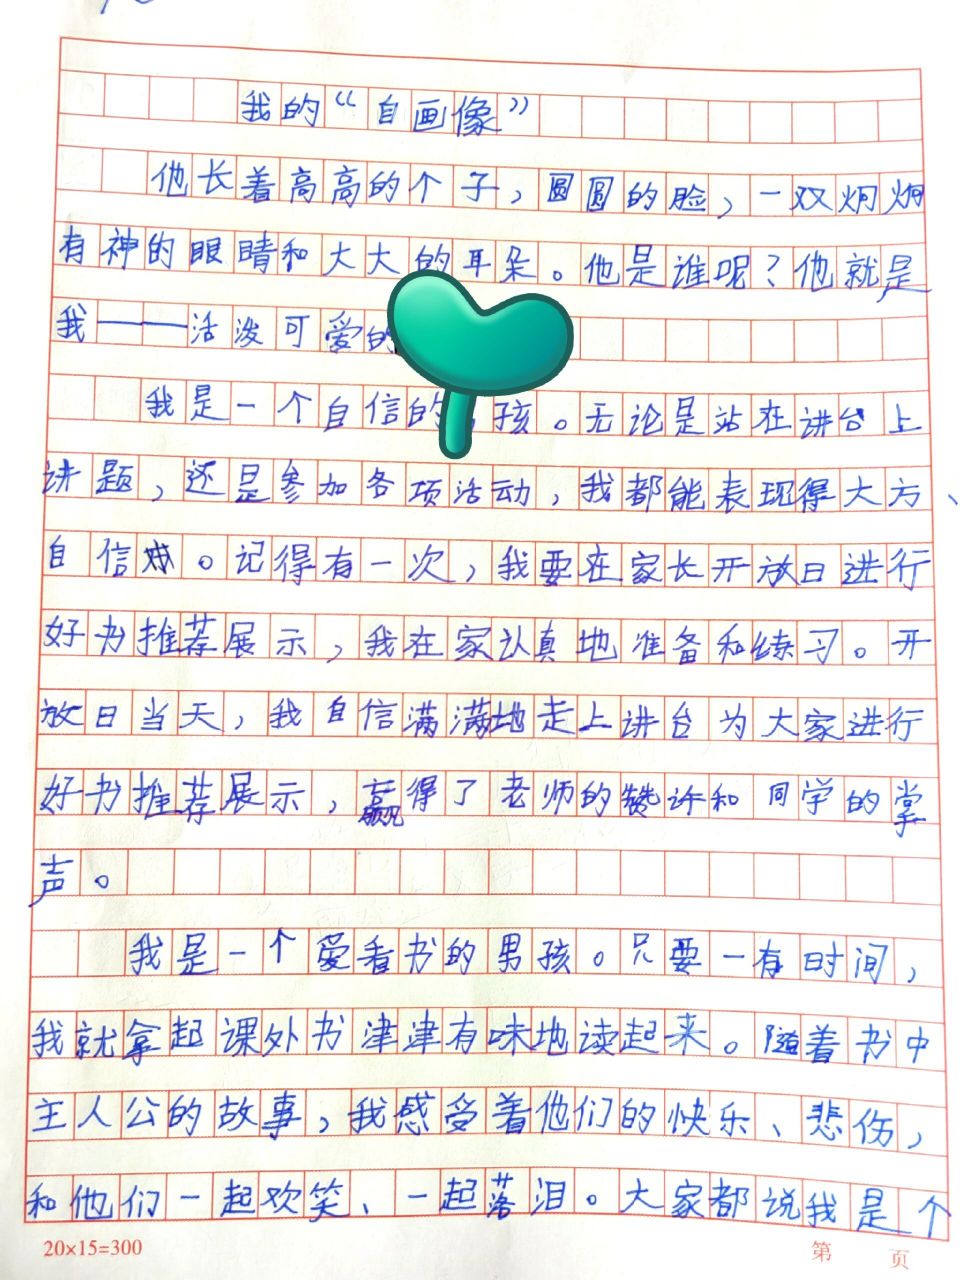 我的“自画像”
他长着高高的个子，圆圆的脸，一双炯炯
有神的眼睛和大大的耳朵。他是谁呢？他就是
我——活泼可爱的
我是一个自信的 孩。无论是站在讲台上
讲题，还是参加各项活动，我都能表现得大方、
自信。记得有一次，我要在家长开放日进行
好书推荐展示，我在家认真地准备和练习。开
放日当天，我自信满满地走上讲台为大家进行
好书推荐展示，赢得了老师的赞许和同学的掌
声。
我是一个爱看书的男孩。只要一有时间，
我就拿起课外书津津有味地读起来。随着书中
主人公的故事，我感受着他们的快乐、悲伤，
和他们一起欢笑、一起落泪。大家都说我是个
20×15=300
第 页